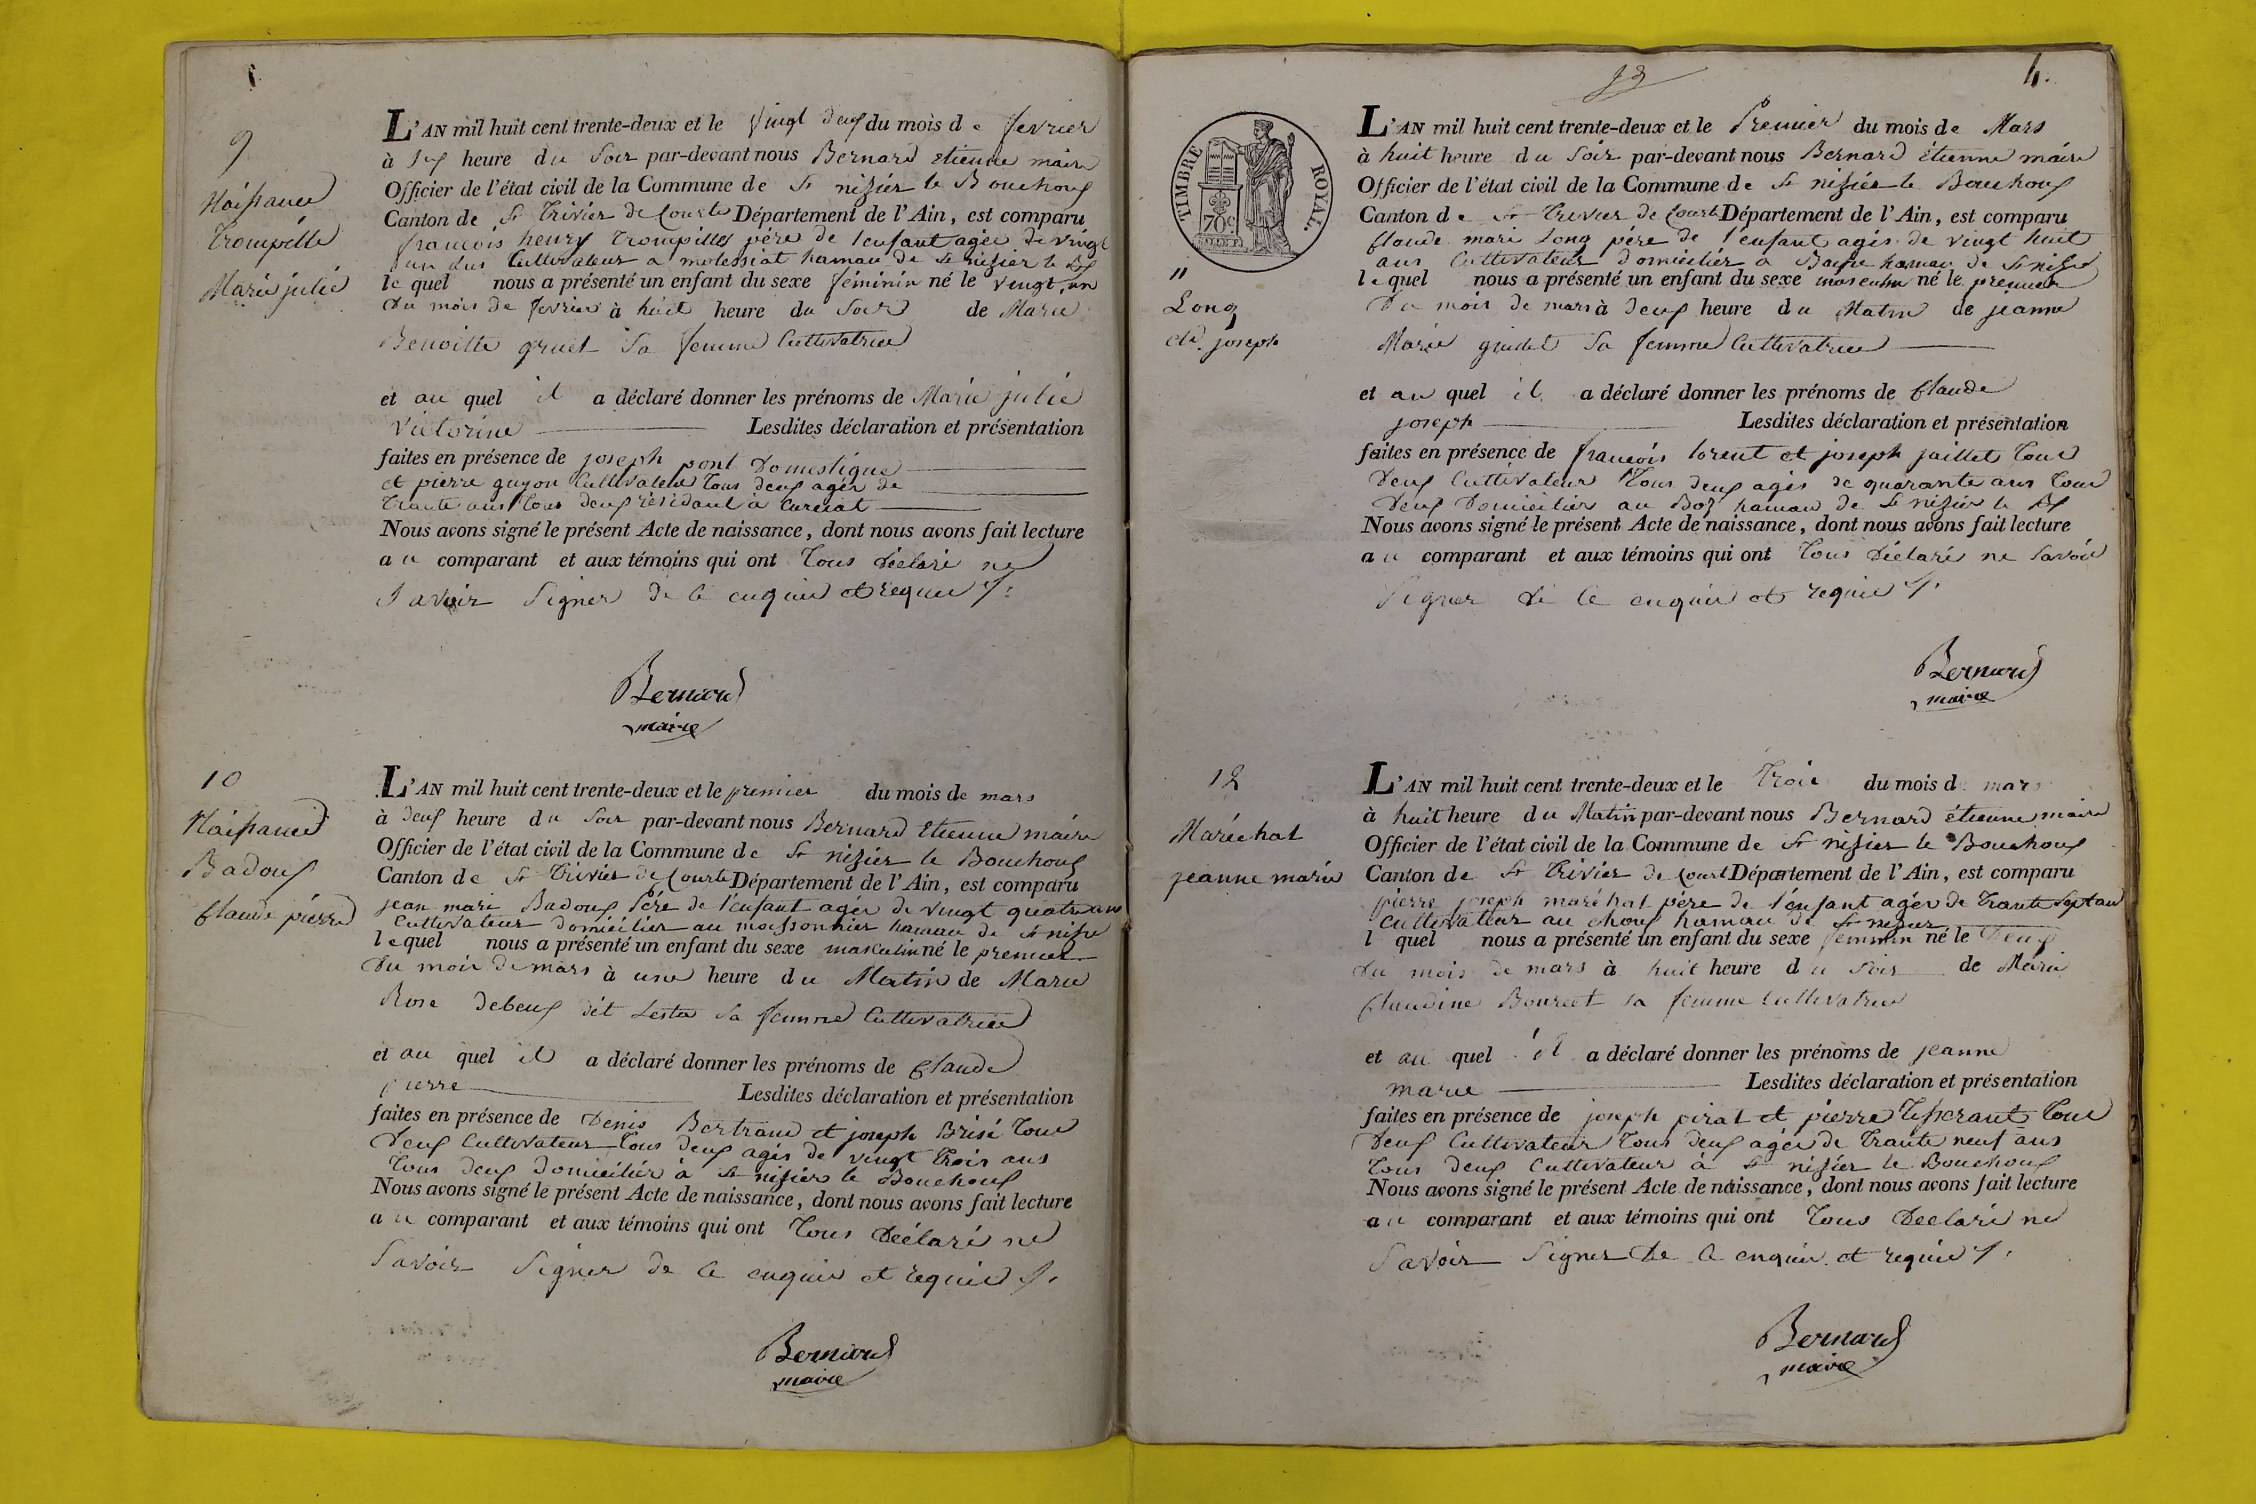 9
Naissance
Trompille
Marie julie
L'AN mil huit cent trente-deux et le vingt deux du mois de fevrier
à six heure du Soir par-devant nous Bernard etienne maire
Officier de l'état civil de la Commune de St nizier le Bouchoux
Canton de St Trivier de Courte Département de l'Ain, est comparu
françois henry Trompille père de l'enfant agée de vingt
un ans Cultivateur a molessiat hamau de St nizier le Bx
le quel nous a présenté un enfant du sexe féminin né le vingt, un
du mois de fevrier à huit heure du Soir de Marie
Benoitte gruet Sa femme Cultivatrice
et au quel il a déclaré donner les prénoms de Marie julie
Victorine Lesdites déclaration et présentation
faites en présence de joseph pont Domestique
et pierre guyon Cultivateur Tous deux agés de
Trante ans Tous deux résidant à Curciat
Nous avons signé le présent Acte de naissance, dont nous avons fait lecture
au comparant et aux témoins qui ont Tous Déclaré ne
Savoir Signer de ce enquis et requis
Bernard
maire
10
Naissance
Badoux
Claude pierre
L'AN mil huit cent trente-deux et le premier du mois de mars
à deux heure du Soir par-devant nous Bernard Etienne maire
Officier de l'état civil de la Commune de St nizier le Bouchoux
Canton de St Trivier de Courte Département de l'Ain, est comparu
jean mari Badoux Père de l'enfant agée de vingt quatre ans
Cultivateur domicilier au moissonnier hamau de St nizier
le quel nous a présenté un enfant du sexe masculin né le premier
Du mois de mars à une heure du Matin de Marie
Rose debeuf dét Lester Sa femme Cultivatrice
et au quel il a déclaré donner les prénoms de Claude
pierre Lesdites déclaration et présentation
faites en présence de Denis Bertrand et joseph Brisé Tous
Deux Cultivateur Tous deux agés de vingt Trois ans
Tous deux domicilier à St nizier le Bouchoux
Nous avons signé le présent Acte de naissance, dont nous avons fait lecture
au comparant et aux témoins qui ont Tous Déclaré ne
Savoir Signer de ce enquis et requis
Bernard
maire
4.
TIMBRE ROYAL.
70c
11
Long
Cde joseph
L'AN mil huit cent trente-deux et le Premier du mois de Mars
à huit heure du Soir par-devant nous Bernard étienne maire
Officier de l'état civil de la Commune de St nizier le Bouchoux
Canton de St Trivier de Courte Département de l'Ain, est comparu
Claude mari Long père de l'enfant agés de vingt huit
ans Cultivateur domicilier à hamau de St nizier
le quel nous a présenté un enfant du sexe masculin né le premier
Du mois de mars à Deux heure du Matin de jeanne
Marie guidet Sa femme Cultivatrice
et au quel il a déclaré donner les prénoms de Claude
joseph Lesdites déclaration et présentation
faites en présence de françois lorent et joseph jaillet Tous
Deux Cultivateur Tous deux agés de quarante ans Tous
Deux Domicilier au Boz hamau de St nizier le Bx
Nous avons signé le présent Acte de naissance, dont nous avons fait lecture
au comparant et aux témoins qui ont Tous Déclaré ne Savoir
Signer de ce enquis et requis
Bernard
maire
12
Maréchal
jeanne marie
L'AN mil huit cent trente-deux et le Trois du mois d mars
à huit heure du Matin par-devant nous Bernard étienne maire
Officier de l'état civil de la Commune de St nizier le Bouchoux
Canton de St Trivier de Court Département de l'Ain, est comparu
pierre joseph maréchal père de l'enfant agée de Trante Sept ans
Cultivateur au choux hamau de St nizier
l quel nous a présenté un enfant du sexe féminin né le Deux
Du mois de mars à huit heure du Soir de Marie
Claudine Bourcet sa femme Cultivatrice
et au quel il a déclaré donner les prénoms de jeanne
marie Lesdites déclaration et présentation
faites en présence de joseph pirat et pierre Tisserant Tous
Deux Cultivateur Tous deux agée de Trante neuf ans
Tous deux Cultivateur à St nizier le Bouchoux
Nous avons signé le présent Acte de naissance, dont nous avons fait lecture
au comparant et aux témoins qui ont Tous Déclaré ne
Savoir Signer De ce enquis et requis
Bernard
maire